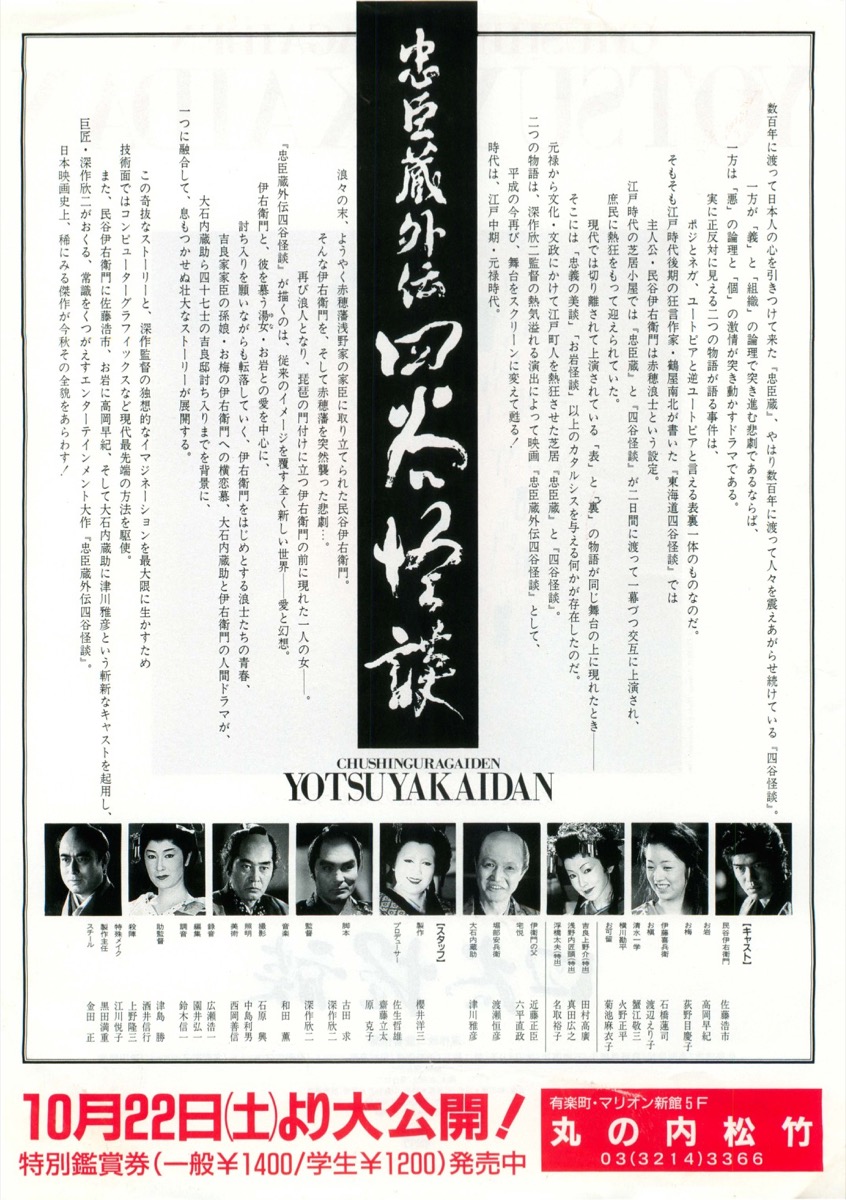 忠臣蔵外伝 四谷怪談
数百年に渡って日本人の心を引きつけて来た『忠臣蔵』、やはり数百年に渡って人々を震えあがらせ続けている『四谷怪談』。
一方が「義」と「組織」の論理で突き進む悲劇であるならば、
一方は「悪」の論理と「個」の激情が突き動かすドラマである。
実に正反対に見える二つの物語が語る事件は、
ポジとネガ、ユートピアと逆ユートピアと言える表裏一体のものなのだ。
そもそも江戸時代後期の狂言作家・鶴屋南北が書いた『東海道四谷怪談』では
主人公・民谷伊右衛門は赤穂浪士という設定。
江戸時代の芝居小屋では『忠臣蔵』と『四谷怪談』が二日間に渡って一幕づつ交互に上演され、
庶民に熱狂をもって迎えられていた。
現代では切り離されて上演されている「表」と「裏」の物語が同じ舞台の上に現れたとき――
そこには「忠義の美談」「お岩怪談」以上のカタルシスを与える何かが存在したのだ。
元禄から文化・文政にかけて江戸町人を熱狂させた芝居『忠臣蔵』と『四谷怪談』。
二つの物語は、深作欣二監督の熱気溢れる演出によって映画『忠臣蔵外伝四谷怪談』として、
平成の今再び、舞台をスクリーンに変えて甦る!
時代は、江戸中期・元禄時代。
浪々の末、ようやく赤穂藩浅野家の家臣に取り立てられた民谷伊右衛門。
そんな伊右衛門を、そして赤穂藩を突然襲った悲劇…。
再び浪人となり、琵琶の門付けに立つ伊右衛門の前に現れた一人の女――。
『忠臣蔵外伝四谷怪談』が描くのは、従来のイメージを覆す全く新しい世界――愛と幻想。
伊右衛門と、彼を慕う湯女・お岩との愛を中心に、
ゆな
討ち入りを願いながらも転落していく、伊右衛門をはじめとする浪士たちの青春、
吉良家家臣の孫娘・お梅の伊右衛門への横恋慕、大石内蔵助と伊右衛門の人間ドラマが、
大石内蔵助ら四十七士の吉良邸討ち入りまでを背景に、
一つに融合して、息もつかせぬ壮大なストーリーが展開する。
この奇抜なストーリーと、深作監督の独想的なイマジネーションを最大限に生かすため
技術面ではコンピューターグラフィックスなど現代最先端の方法を駆使。
また、民谷伊右衛門に佐藤浩市、お岩に高岡早紀、そして大石内蔵助に津川雅彦という斬新なキャストを起用し、
巨匠・深作欣二がおくる、常識をくつがえすエンターテインメント大作『忠臣蔵外伝四谷怪談』。
日本映画史上、稀にみる傑作が今秋その全貌をあらわす!
CHUSHINGURAGAIDEN
YOTSUYAKAIDAN
【キャスト】
民谷伊右衛門 佐藤浩市
お岩 高岡早紀
お梅 荻野目慶子
伊藤喜兵衛 石橋蓮司
お槇 渡辺えり子
清水一学 蟹江敬三
横川勘平 火野正平
お可留 菊池麻衣子
吉良上野介(特出) 田村高廣
浅野内匠頭(特出) 真田広之
浮橋太夫(特出) 名取裕子
伊右衛門の父 近藤正臣
宅悦 六平直政
堀部安兵衛 渡瀬恒彦
大石内蔵助 津川雅彦
【スタッフ】
製作 櫻井洋三
プロデューサー 佐生哲雄
齋藤立太
原 克子
脚本 古田 求
深作欣二
監督 深作欣二
音楽 和田 薫
撮影 石原 興
照明 中島利男
美術 西岡善信
録音 広瀬浩一
編集 園井弘一
調音 鈴木信一
助監督 津島 勝
殺陣 酒井信行
上野隆三
特殊メイク 江川悦子
製作主任 黒田満重
スチール 金田 正
10月22日(土)より大公開!
特別鑑賞券(一般¥1400/学生¥1200)発売中
有楽町・マリオン新館5F
丸の内松竹
03(3214)3366